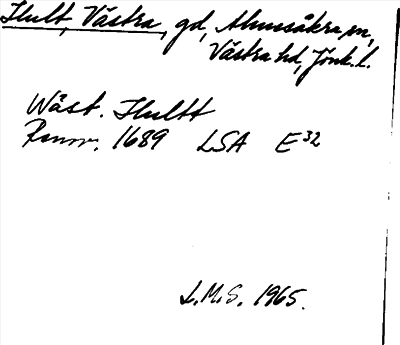 Hult, Västra, gd, Almesåkra sn,
Västra hd, Jönk. l.
Wäst. Hultt
Renov. 1689 LSA E32
L.M.S. 1965.